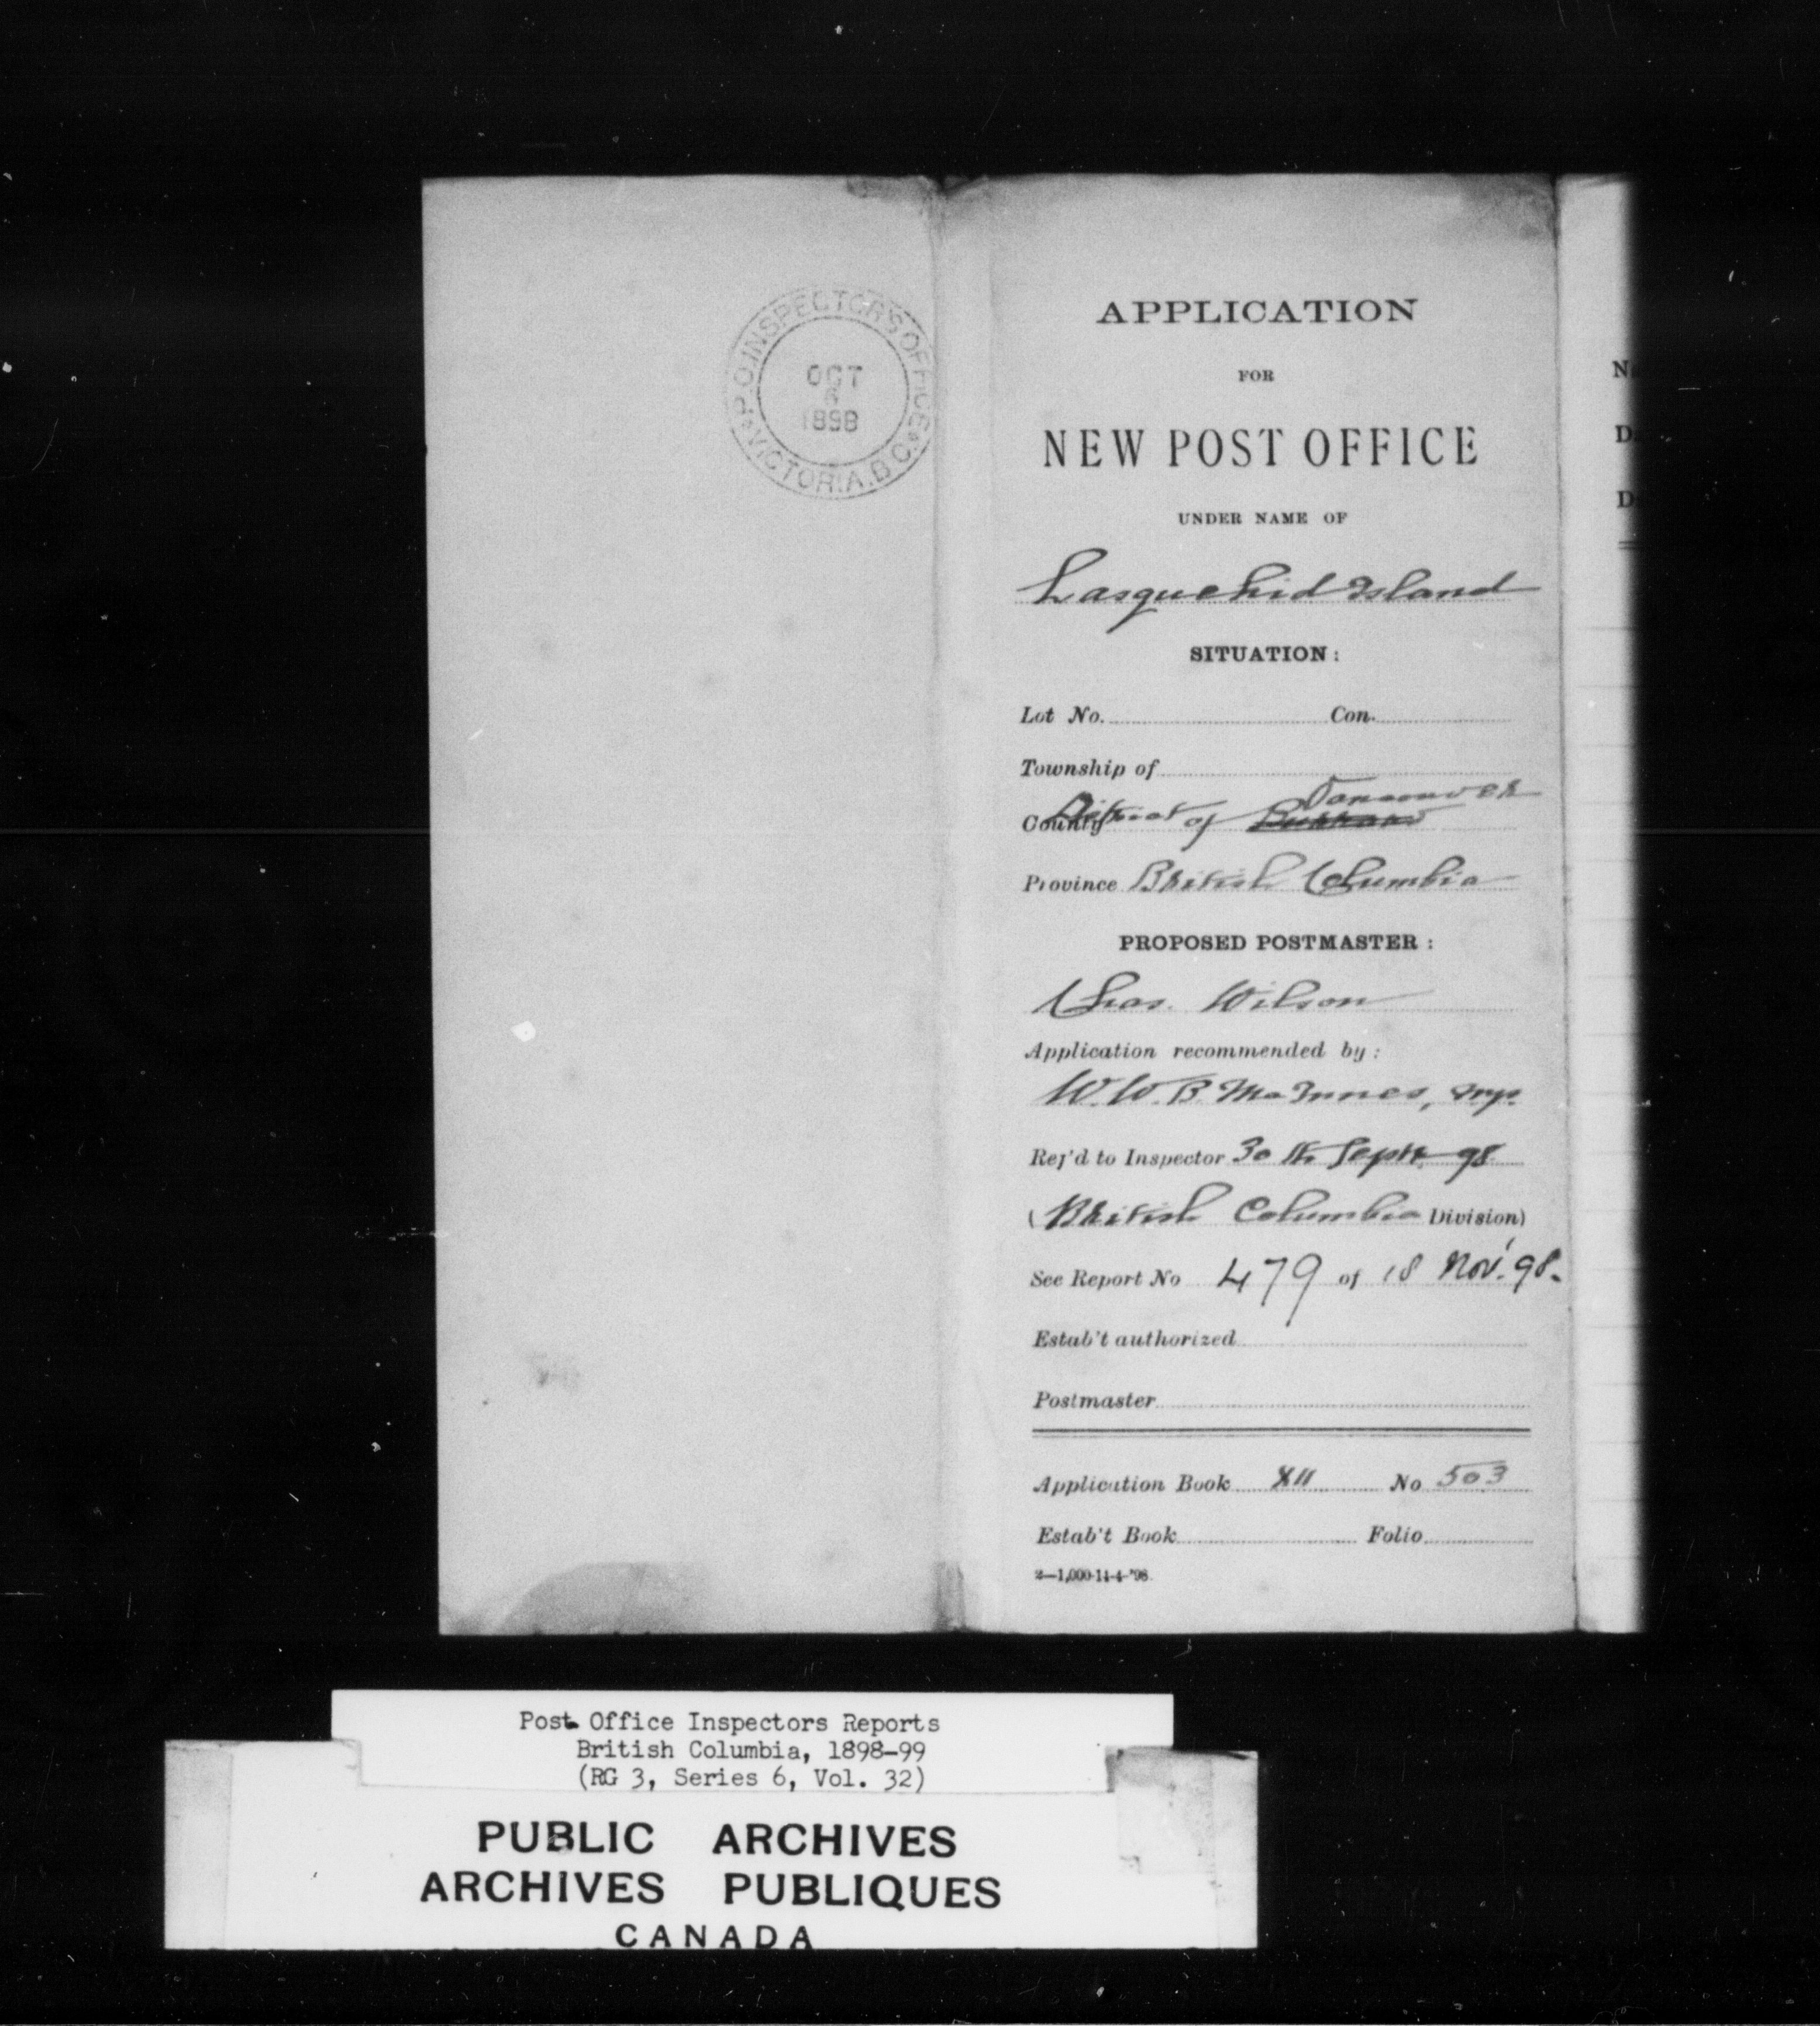 P.O. INSPECTOR'S OFFICE
OCT
6
1898
VICTORIA, B.C.
APPLICATION
FOR
NEW POST OFFICE
UNDER NAME OF
Lasquehid Island
SITUATION:
Lot No. Con.
Township of
Vancouver
County District of Burrard
Province British Columbia
PROPOSED POSTMASTER:
Chas. Wilson
Application recommended by:
W. W. B. McInnes, M.P.
Ref'd to Inspector 30th Sept. 98
(British Columbia Division)
See Report No 479 of 18 Nov. 98.
Estab't authorized
Postmaster
Application Book XII No 503
Estab't Book Folio
2—1,000-14-4-'98.
Post Office Inspectors Reports
British Columbia, 1898-99
(RG 3, Series 6, Vol. 32)
PUBLIC ARCHIVES
ARCHIVES PUBLIQUES
CANADA